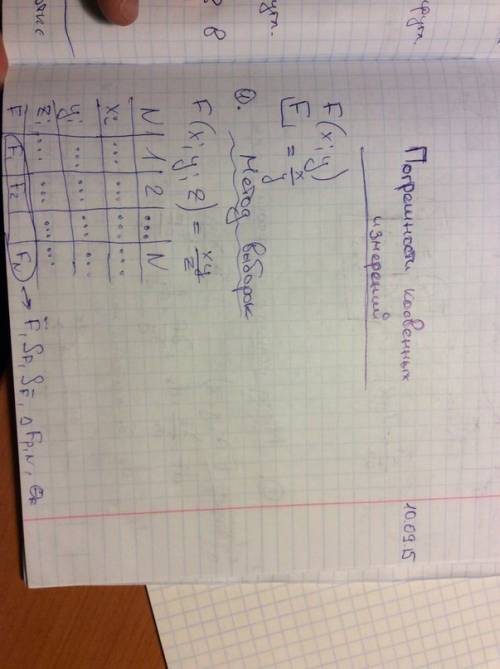 10.09.15
Погрешности косвенных
измерений
F(x; y)
F = x/y
①. Метод выборок
F(x; y; z) = xy/z
N | 1 | 2 | ... | N
xi | ... | ... | ... | ...
yi | ... | ... | ... | ...
zi | ... | ... | ... | ...
F | F1 | F2 | | FN → F̄,